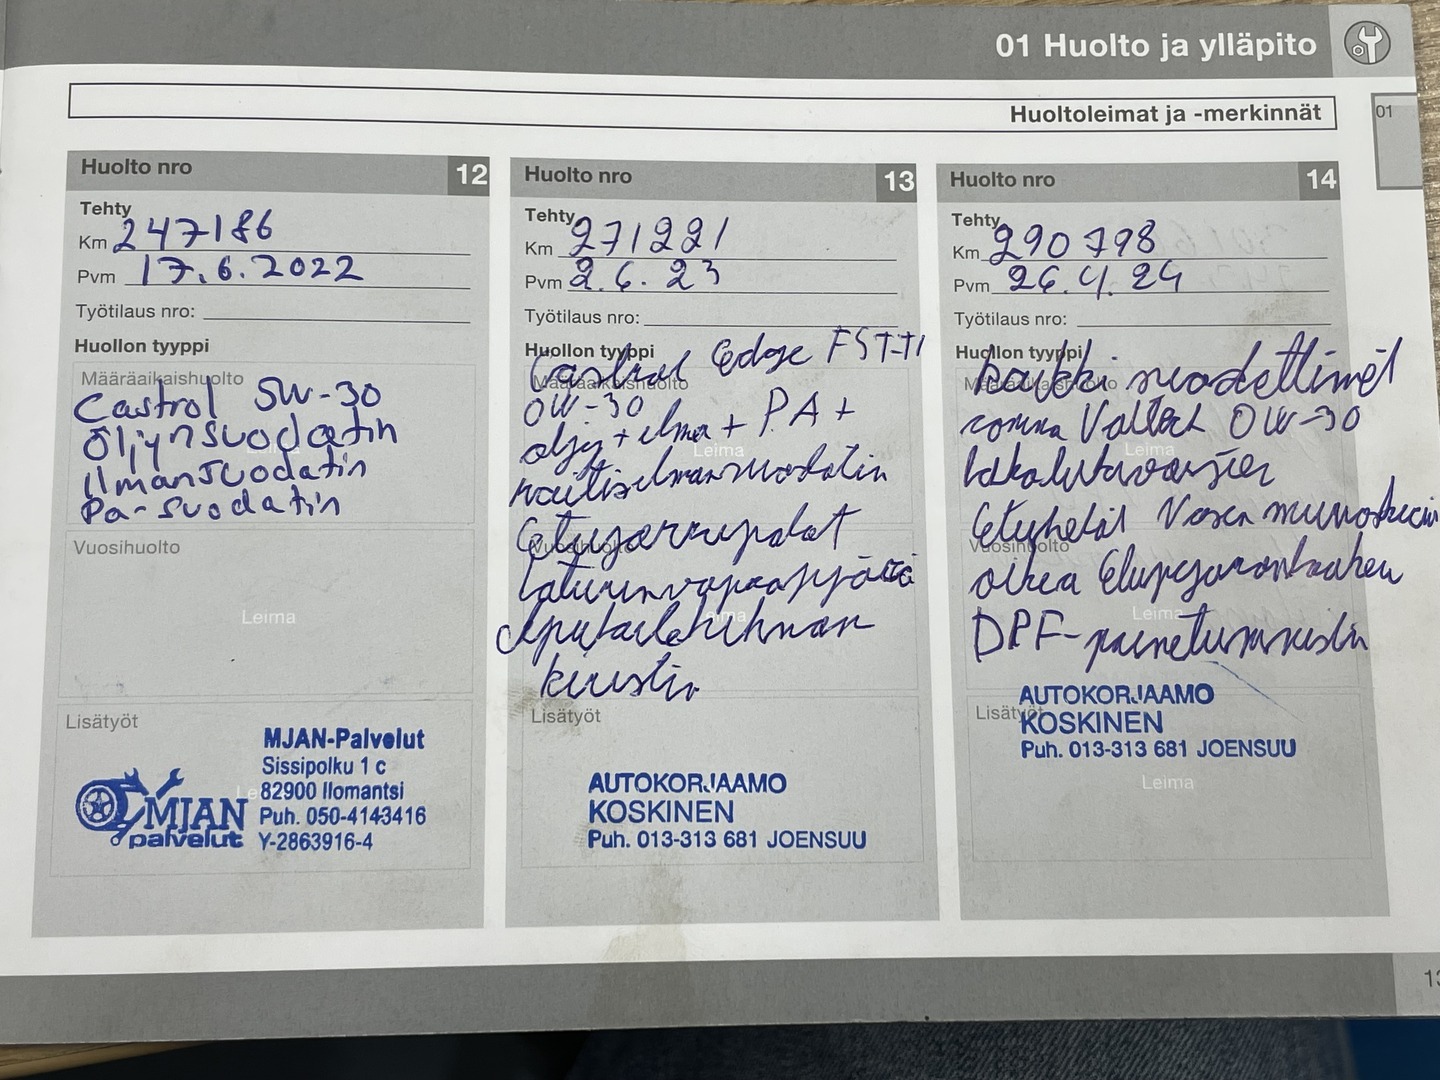 01 Huolto ja ylläpito
Huoltoleimat ja -merkinnät
01
Huolto nro 12
Tehty
Km 247186
Pvm 17.6.2022
Työtilaus nro:
Huollon tyyppi
Määräaikaishuolto
Castrol 5W-30
Öljynsuodatin
Ilmansuodatin
Pa-suodatin
Vuosihuolto
Leima
Lisätyöt
MJAN palvelut
MJAN-Palvelut
Sissipolku 1 c
82900 Ilomantsi
Puh. 050-4143416
Y-2863916-4
Huolto nro 13
Tehty
Km 271221
Pvm 2.6.23
Työtilaus nro:
Huollon tyyppi
Määräaikaishuolto
Castrol Edge FST-TI
0W-30
öljy + ilma + PA +
raitisilmansuodatin
Leima
Etujarrupalat
Vuosihuolto
laturinvapaapyörä
Leima
Apulaitehihnan
kiristin
Lisätyöt
AUTOKORJAAMO
KOSKINEN
Puh. 013-313 681 JOENSUU
Huolto nro 14
Tehty
Km 290798
Pvm 26.4.24
Työtilaus nro:
Huollon tyyppi
Määräaikaishuolto
kaikki suodattimet
0W-30
Leima
Vuosihuolto
oikea
Leima
DPF-painetunnistin
Lisätyöt
AUTOKORJAAMO
KOSKINEN
Puh. 013-313 681 JOENSUU
Leima